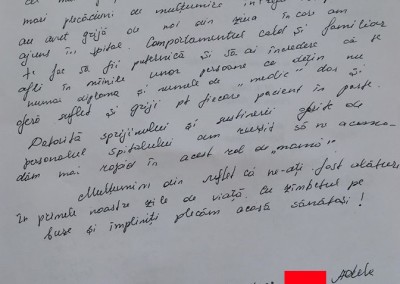 mari plăcăduni de mulțumire
au avut grijă de noi din ziua în care am
ajuns în spital. Comportamentul cald și familiar
te fac să fii puternică și să ai încredere că te
afli în mîinile unor persoane ce dețin nu
numai diploma și numele de "medic" dar și
oferă suflet și griji pt fiecare pacient în parte.
Datorită sprijinului și susținerii oferite de
personalul spitalului am reușit să ne acomo-
dăm mai rapid în acest rol de "mamă".
Mulțumim din suflet că ne-ați fost alături
în primele noastre zile de viață. Cu zîmbetul pe
buze și împliniți plecăm acasă sănătoși!
Adela